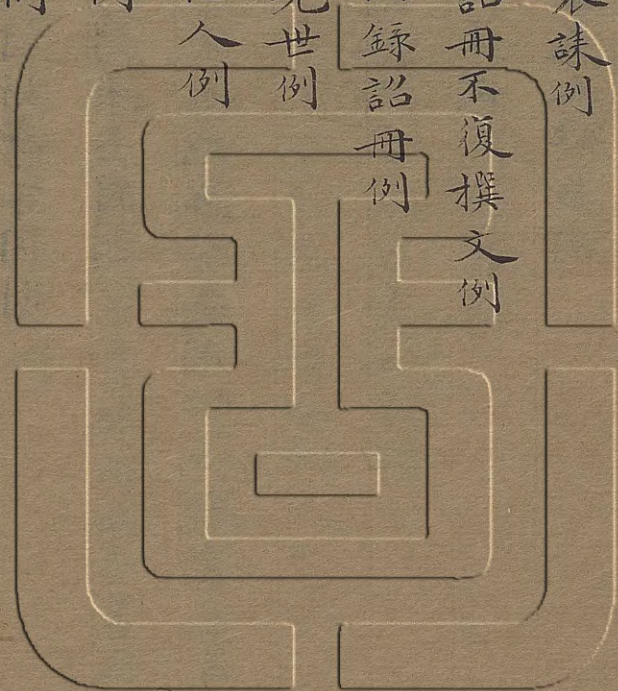 誄例
詔冊不復撰文例
錄詔冊例
世例
人例